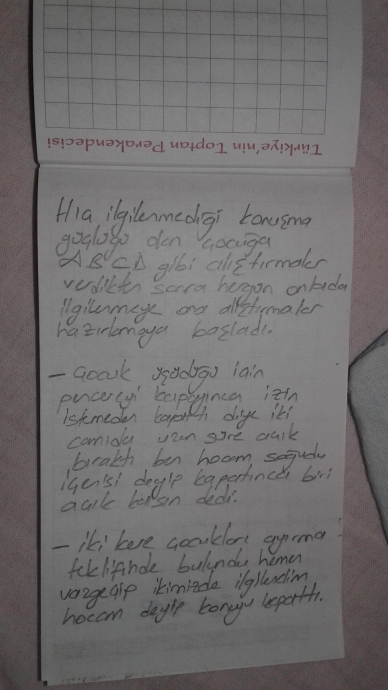 Türkiye'nin Toptan Perakendecisi
Hiç ilgilenmediği konuşma
güçlüğü olan çocuğa
A B C D gibi alıştırmalar
verdikten sonra hergün onbida
ilgilenmeye ona alıştırmalar
hazırlamaya başladı.
– Çocuk üşüdüğü için
pencereyi kapayınca izin
istemeden kapattı diye iki
camıda uzun süre açık
bıraktı ben hocam soğudu
içerisi deyip kapatınca biri
açık kalsın dedi.
– iki kere çocukları ayırma
teklifinde bulundu hemen
vazgeçip ikimizde ilgilendim
hocam deyip konuyu kapattı.